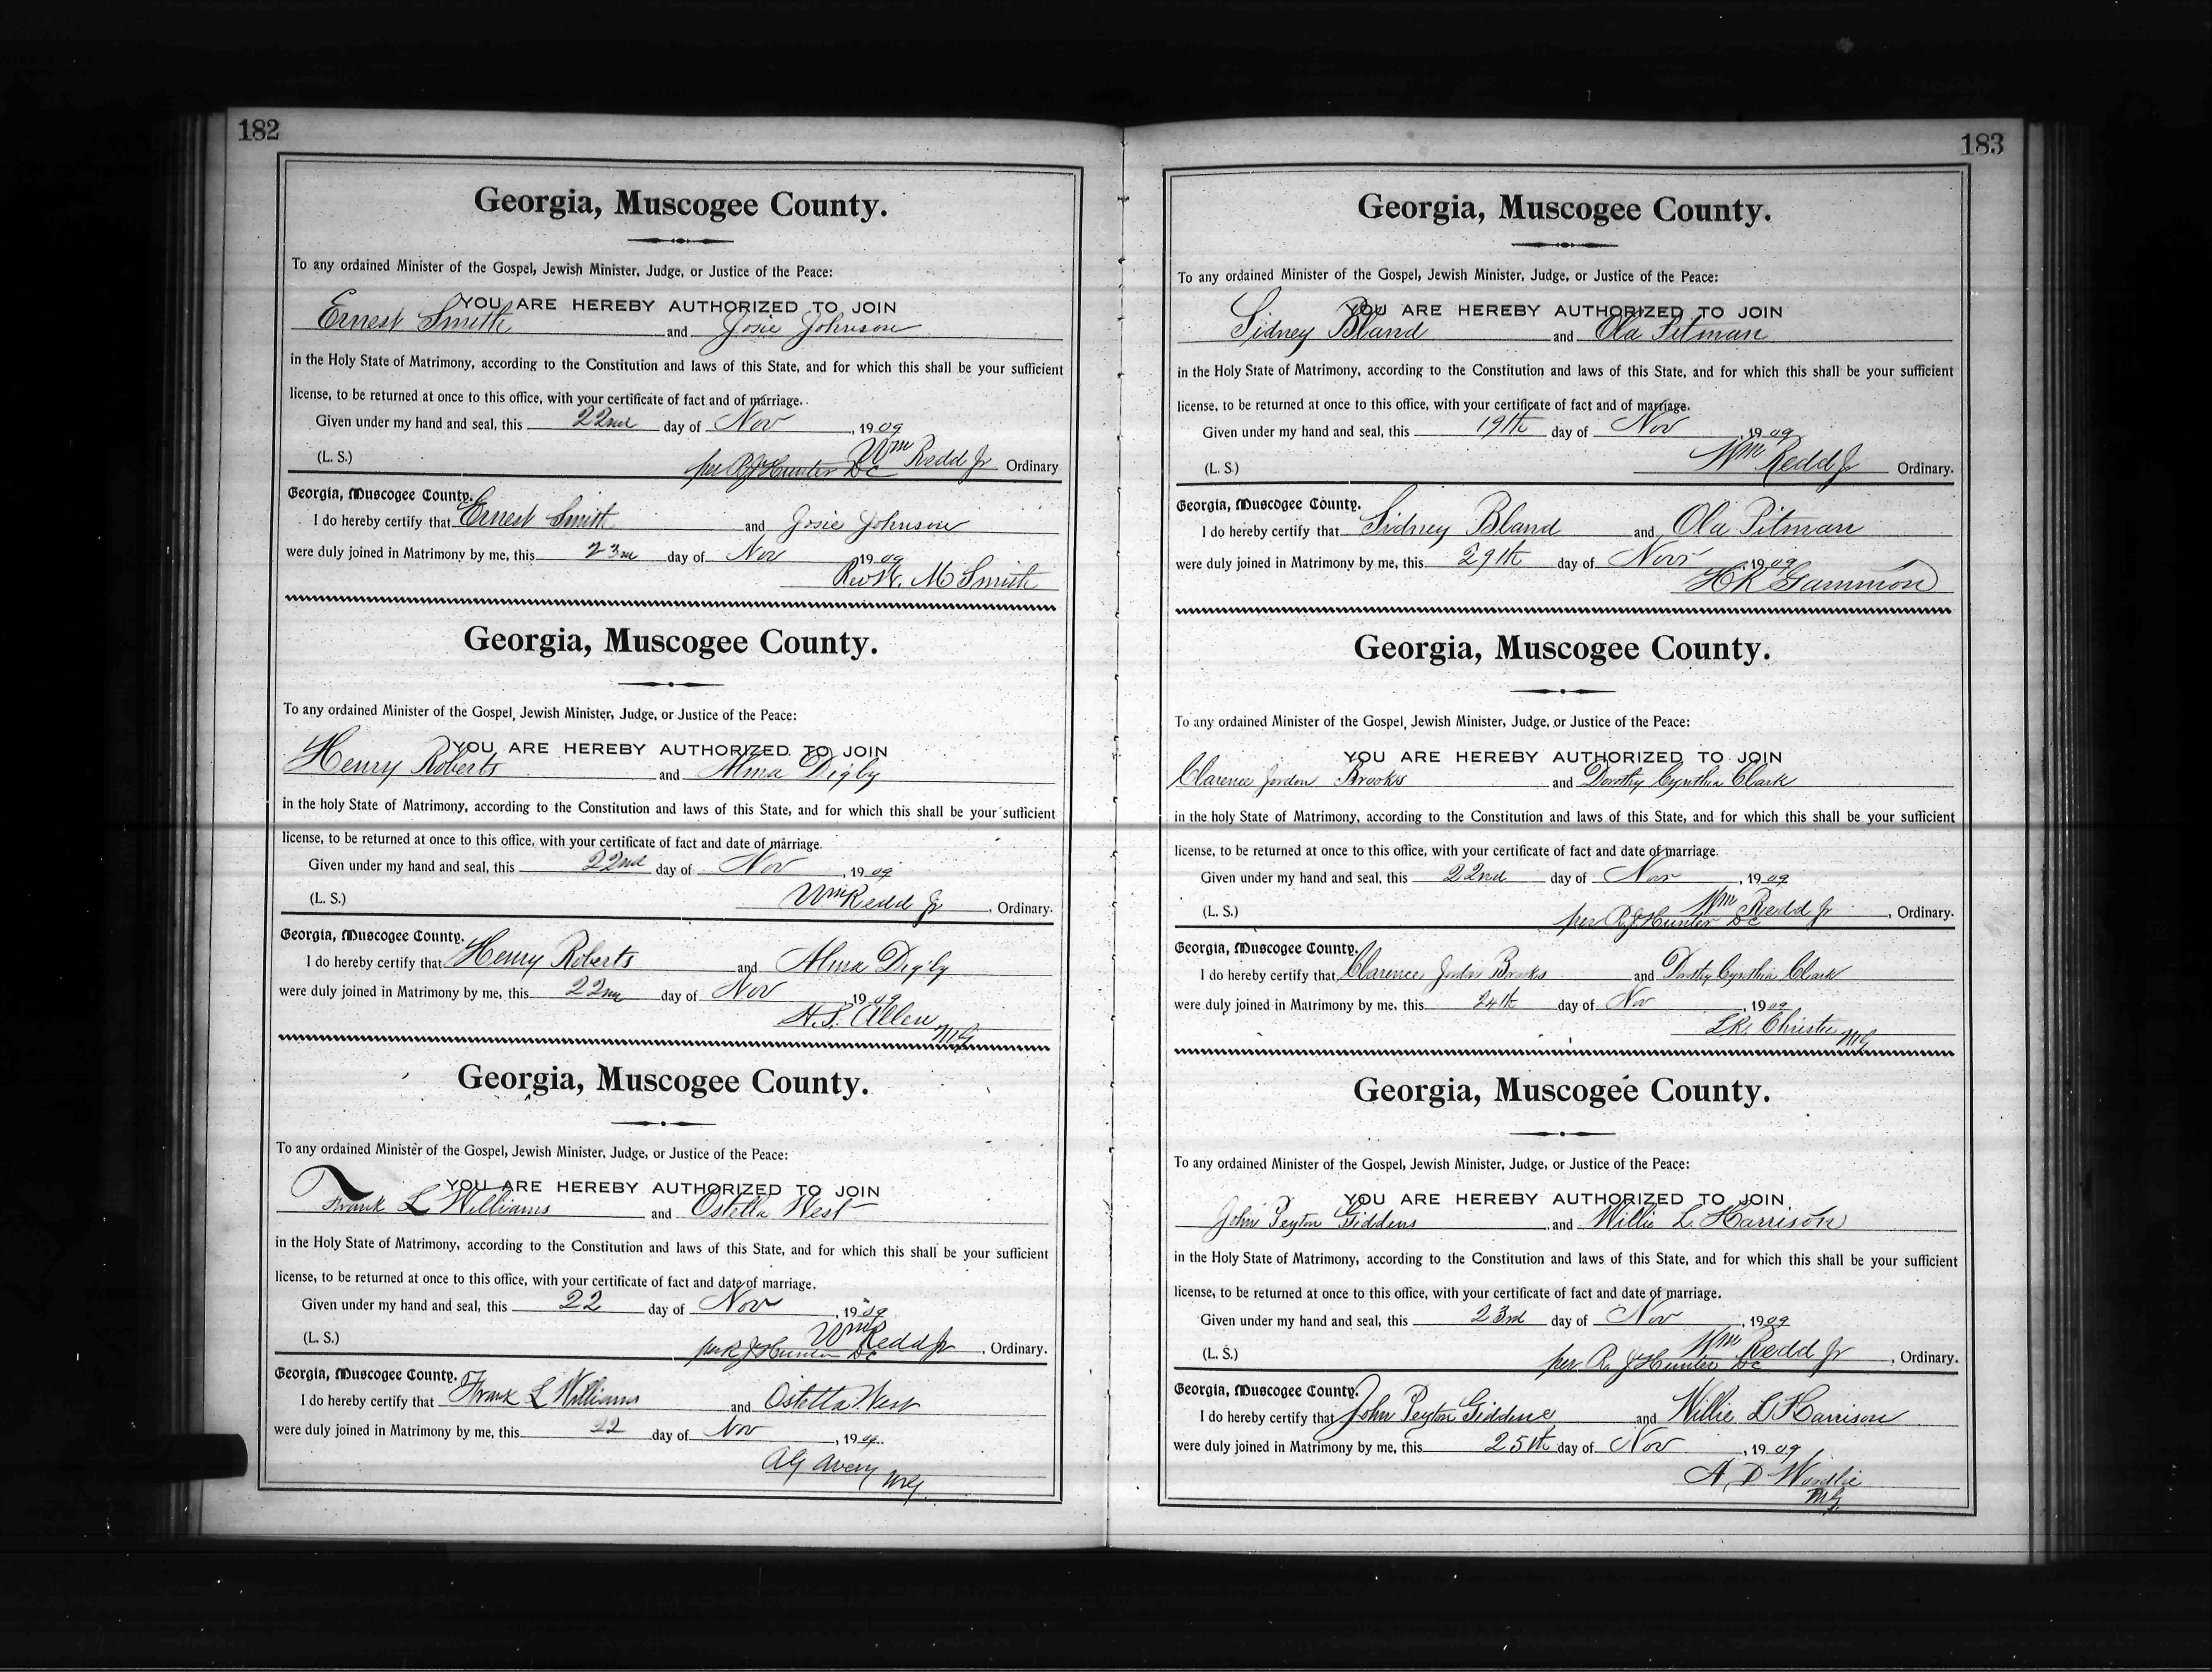 182
Georgia, Muscogee County.
To any ordained Minister of the Gospel, Jewish Minister, Judge, or Justice of the Peace:
YOU ARE HEREBY AUTHORIZED TO JOIN
Ernest Smith and Josie Johnson
in the Holy State of Matrimony, according to the Constitution and laws of this State, and for which this shall be your sufficient
license, to be returned at once to this office, with your certificate of fact and of marriage.
Given under my hand and seal, this 22nd day of Nov, 1909
(L. S.) Wm Redd Jr Ordinary
per R J Hunter DC
Georgia, Muscogee County.
I do hereby certify that Ernest Smith and Josie Johnson
were duly joined in Matrimony by me, this 23rd day of Nov 1909
Rev W. M Smith
Georgia, Muscogee County.
To any ordained Minister of the Gospel, Jewish Minister, Judge, or Justice of the Peace:
YOU ARE HEREBY AUTHORIZED TO JOIN
Henry Roberts and Alma Digby
in the holy State of Matrimony, according to the Constitution and laws of this State, and for which this shall be your sufficient
license, to be returned at once to this office, with your certificate of fact and date of marriage.
Given under my hand and seal, this 22nd day of Nov, 1909
(L. S.) Wm Redd Jr, Ordinary.
Georgia, Muscogee County.
I do hereby certify that Henry Roberts and Alma Digby
were duly joined in Matrimony by me, this 22nd day of Nov, 1909
H. S. Allen
MG
Georgia, Muscogee County.
To any ordained Minister of the Gospel, Jewish Minister, Judge, or Justice of the Peace:
YOU ARE HEREBY AUTHORIZED TO JOIN
Frank L Williams and Ostella West
in the Holy State of Matrimony, according to the Constitution and laws of this State, and for which this shall be your sufficient
license, to be returned at once to this office, with your certificate of fact and date of marriage.
Given under my hand and seal, this 22 day of Nov, 1909
(L. S.) Wm Redd Jr, Ordinary.
per R J Hunter DC
Georgia, Muscogee County.
I do hereby certify that Frank L Williams and Ostella West
were duly joined in Matrimony by me, this 22 day of Nov, 1909.
AG Avery
MG
183
Georgia, Muscogee County.
To any ordained Minister of the Gospel, Jewish Minister, Judge, or Justice of the Peace:
YOU ARE HEREBY AUTHORIZED TO JOIN
Sidney Bland and Ola Pitman
in the Holy State of Matrimony, according to the Constitution and laws of this State, and for which this shall be your sufficient
license, to be returned at once to this office, with your certificate of fact and of marriage.
Given under my hand and seal, this 19th day of Nov, 1909
(L. S.) Wm Redd Jr Ordinary.
Georgia, Muscogee County.
I do hereby certify that Sidney Bland and Ola Pitman
were duly joined in Matrimony by me, this 29th day of Nov, 1909
HR Gammon
Georgia, Muscogee County.
To any ordained Minister of the Gospel, Jewish Minister, Judge, or Justice of the Peace:
YOU ARE HEREBY AUTHORIZED TO JOIN
Clarence Jordon Brooks and Dorothy Cynthia Clark
in the holy State of Matrimony, according to the Constitution and laws of this State, and for which this shall be your sufficient
license, to be returned at once to this office, with your certificate of fact and date of marriage.
Given under my hand and seal, this 22nd day of Nov, 1909
(L. S.) Wm Redd Jr, Ordinary.
per R. J Hunter DC
Georgia, Muscogee County.
I do hereby certify that Clarence Jordon Brooks and Dorothy Cynthia Clark
were duly joined in Matrimony by me, this 24th day of Nov, 1909
LR. Christie
MG
Georgia, Muscogee County.
To any ordained Minister of the Gospel, Jewish Minister, Judge, or Justice of the Peace:
YOU ARE HEREBY AUTHORIZED TO JOIN
John Peyton Giddens and Willie L. Harrison
in the Holy State of Matrimony, according to the Constitution and laws of this State, and for which this shall be your sufficient
license, to be returned at once to this office, with your certificate of fact and date of marriage.
Given under my hand and seal, this 23rd day of Nov, 1909
(L. S.) Wm Redd Jr, Ordinary.
per R. J Hunter DC
Georgia, Muscogee County.
I do hereby certify that John Peyton Giddens and Willie L Harrison
were duly joined in Matrimony by me, this 25th day of Nov, 1909
A. D
MG